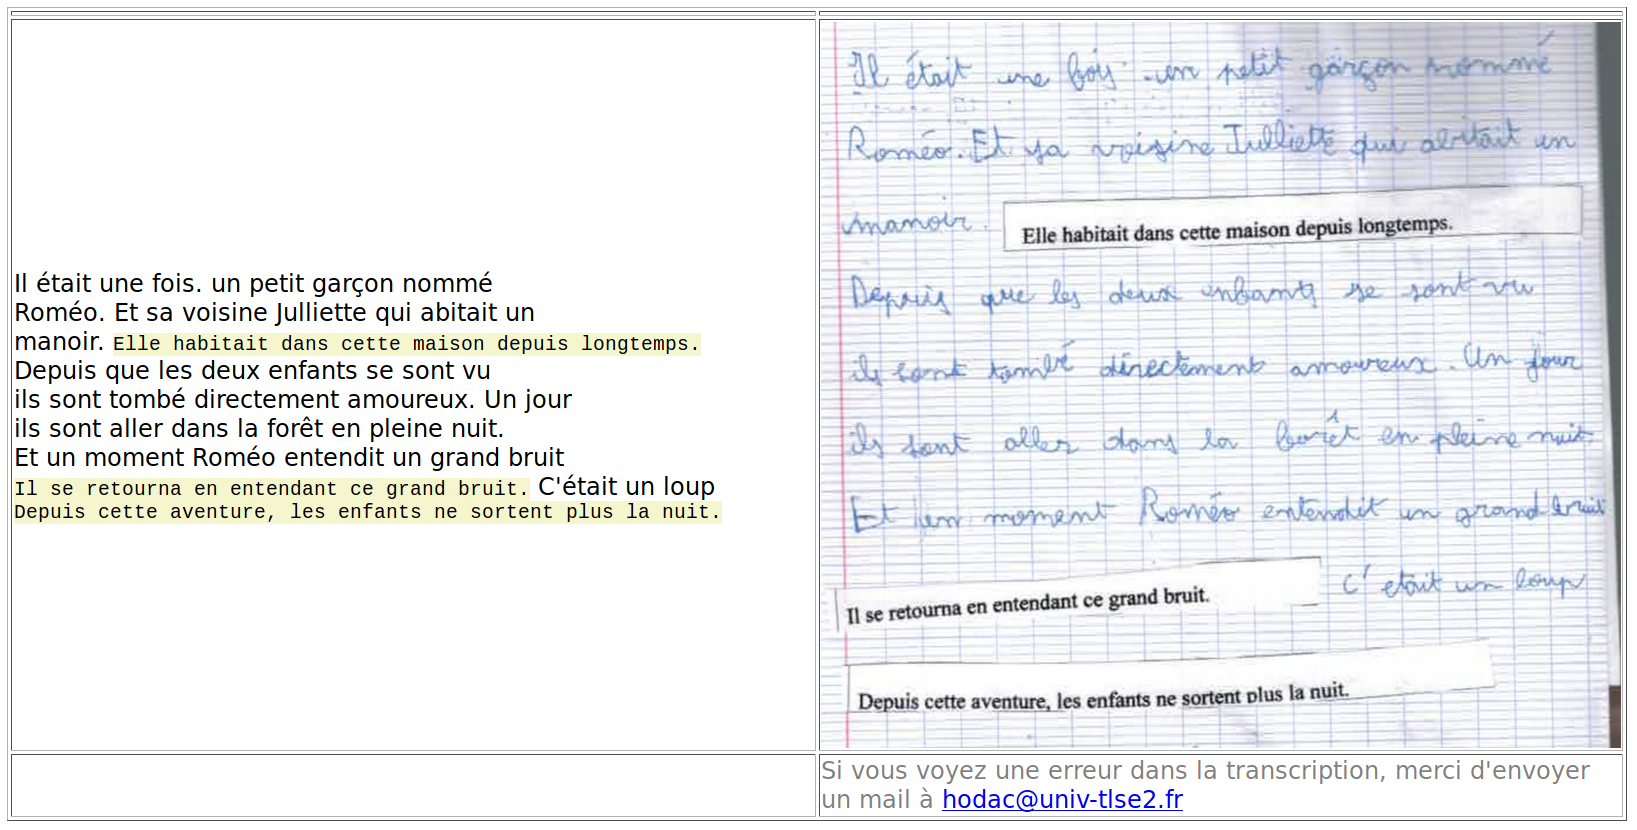 Il était une fois. un petit garçon nommé
Roméo. Et sa voisine Julliette qui abitait un
manoir. Elle habitait dans cette maison depuis longtemps.
Depuis que les deux enfants se sont vu
ils sont tombé directement amoureux. Un jour
ils sont aller dans la forêt en pleine nuit.
Et un moment Roméo entendit un grand bruit
Il se retourna en entendant ce grand bruit. C'était un loup
Depuis cette aventure, les enfants ne sortent plus la nuit.
Il était une fois. un petit garçon nommé
Roméo. Et sa voisine Julliette qui abitait un
manoir. Elle habitait dans cette maison depuis longtemps.
Depuis que les deux enfants se sont vu
ils sont tombé directement amoureux. Un jour
ils sont aller dans la forêt en pleine nuit.
Et un moment Roméo entendit un grand bruit
Il se retourna en entendant ce grand bruit. C'etait un loup
Depuis cette aventure, les enfants ne sortent plus la nuit.
Si vous voyez une erreur dans la transcription, merci d'envoyer
un mail à hodac@univ-tlse2.fr